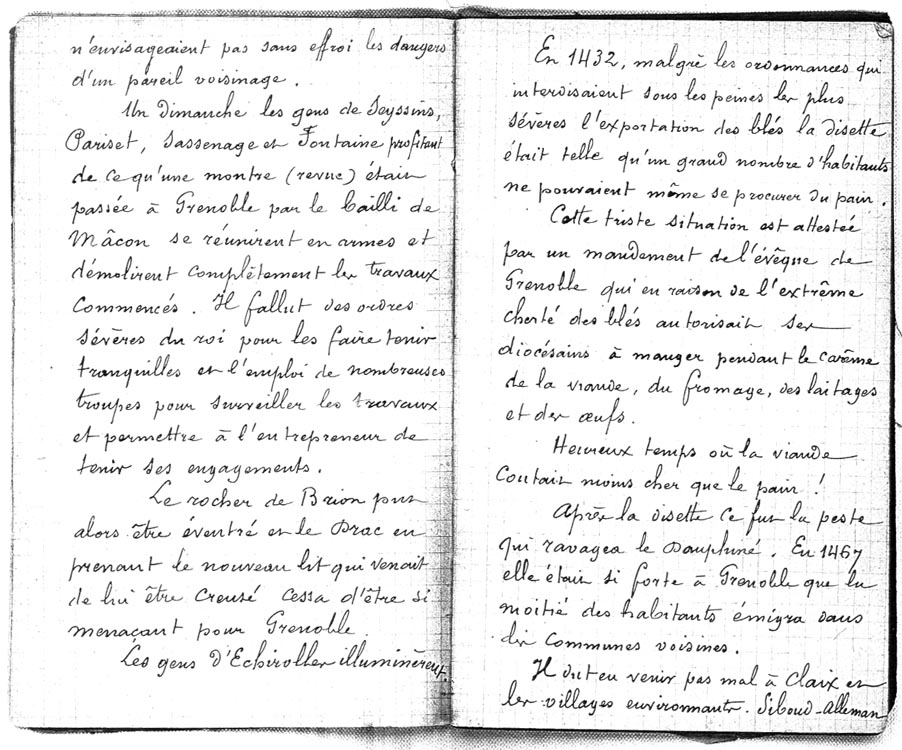 n'envisageaient pas sans effroi les dangers
d'un pareil voisinage.
Un dimanche les gens de Seyssins,
Pariset, Sassenage et Fontaine profitant
de ce qu'une montre (revue) était
passée à Grenoble par le bailli de
Mâcon se réunirent en armes et
démolirent complètement les travaux
commencés. Il fallut des ordres
sévères du roi pour les faire tenir
tranquilles et l'emploi de nombreuses
troupes pour surveiller les travaux
et permettre à l'entrepreneur de
tenir ses engagements.
Le rocher de Brion put
alors être éventré et le Drac en
prenant le nouveau lit qui venait
de lui être creusé cessa d'être si
menaçant pour Grenoble
Les gens d'Echirolles illuminèrent.
En 1432, malgré les ordonnances qui
interdisaient sous les peines les plus
sévères l'exportation des blés la disette
était telle qu'un grand nombre d'habitants
ne pouvaient même se procurer du pain.
Cette triste situation est attestée
par un mandement de l'évêque de
Grenoble qui en raison de l'extrême
cherté des blés autorisait ses
diocésains à manger pendant le carême
de la viande, du fromage, des laitages
et des œufs.
Heureux temps où la viande
coutait moins cher que le pain !
Après la disette ce fut la peste
qui ravagea le Dauphiné. En 1467
elle était si forte à Grenoble que la
moitié des habitants émigra dans
les communes voisines.
Il dut en venir pas mal à Claix et
les villages environnants. Siboud-Alleman